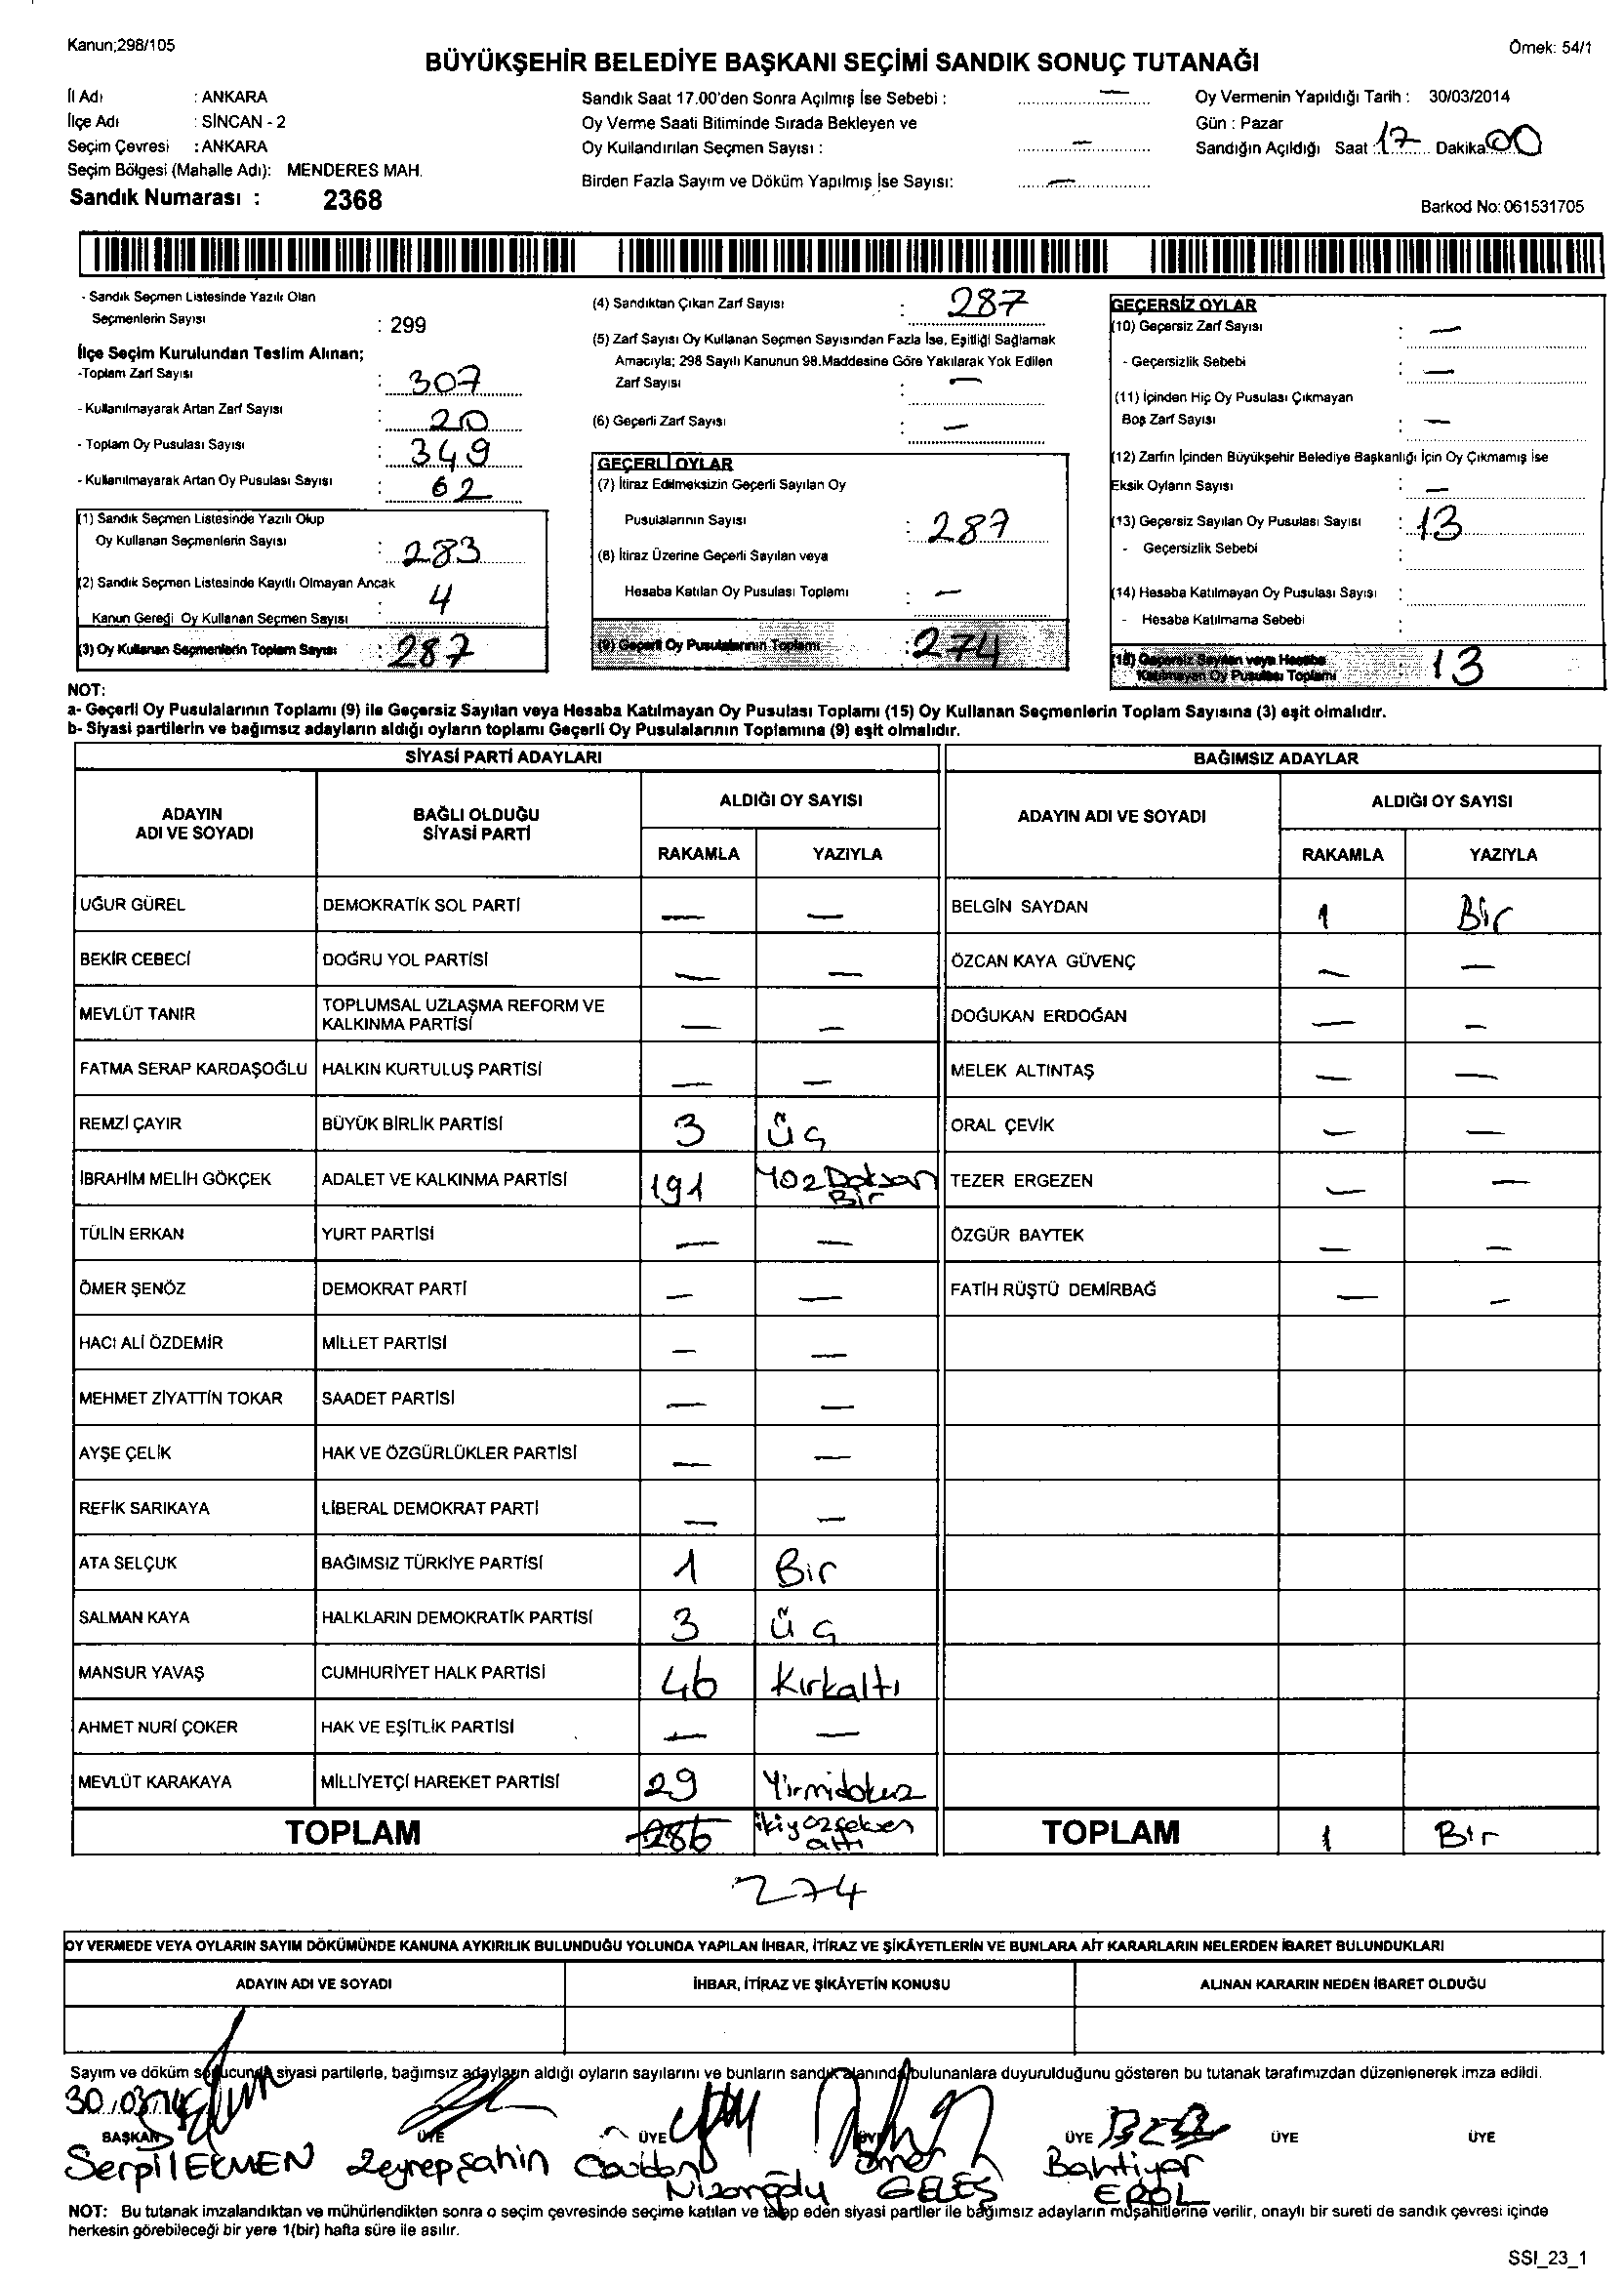 Kanun;298/105
Örnek: 54/1
BÜYÜKŞEHİR BELEDİYE BAŞKANI SEÇİMİ SANDIK SONUÇ TUTANAĞI
İl Adı : ANKARA
İlçe Adı : SİNCAN - 2
Seçim Çevresi : ANKARA
Seçim Bölgesi (Mahalle Adı): MENDERES MAH.
Sandık Numarası : 2368
Sandık Saat 17.00'den Sonra Açılmış İse Sebebi : —
Oy Verme Saati Bitiminde Sırada Bekleyen ve
Oy Kullandırılan Seçmen Sayısı : —
Birden Fazla Sayım ve Döküm Yapılmış İse Sayısı: —
Oy Vermenin Yapıldığı Tarih : 30/03/2014
Gün : Pazar
Sandığın Açıldığı Saat : 17 Dakika 00
Barkod No: 061531705
- Sandık Seçmen Listesinde Yazılı Olan
Seçmenlerin Sayısı : 299
İlçe Seçim Kurulundan Teslim Alınan;
-Toplam Zarf Sayısı : 307
- Kullanılmayarak Artan Zarf Sayısı : 20
- Toplam Oy Pusulası Sayısı : 349
- Kullanılmayarak Artan Oy Pusulası Sayısı : 62
(1) Sandık Seçmen Listesinde Yazılı Olup
Oy Kullanan Seçmenlerin Sayısı : 283
(2) Sandık Seçmen Listesinde Kayıtlı Olmayan Ancak
Kanun Gereği Oy Kullanan Seçmen Sayısı : 4
(3) Oy Kullanan Seçmenlerin Toplam Sayısı : 287
(4) Sandıktan Çıkan Zarf Sayısı : 287
(5) Zarf Sayısı Oy Kullanan Seçmen Sayısından Fazla İse, Eşitliği Sağlamak
Amacıyla; 298 Sayılı Kanunun 98.Maddesine Göre Yakılarak Yok Edilen
Zarf Sayısı : —
(6) Geçerli Zarf Sayısı : —
GEÇERLİ OYLAR
(7) İtiraz Edilmeksizin Geçerli Sayılan Oy
Pusulalarının Sayısı : 287
(8) İtiraz Üzerine Geçerli Sayılan veya
Hesaba Katılan Oy Pusulası Toplamı : —
(9) Geçerli Oy Pusulalarının Toplamı : 274
GEÇERSİZ OYLAR
(10) Geçersiz Zarf Sayısı : —
- Geçersizlik Sebebi : —
(11) İçinden Hiç Oy Pusulası Çıkmayan
Boş Zarf Sayısı : —
(12) Zarfın İçinden Büyükşehir Belediye Başkanlığı İçin Oy Çıkmamış İse
Eksik Oyların Sayısı : —
(13) Geçersiz Sayılan Oy Pusulası Sayısı : 13
- Geçersizlik Sebebi :
(14) Hesaba Katılmayan Oy Pusulası Sayısı :
- Hesaba Katılmama Sebebi :
(15) Geçersiz Sayılan veya Hesaba
Katılmayan Oy Pusulası Toplamı : 13
NOT:
a- Geçerli Oy Pusulalarının Toplamı (9) ile Geçersiz Sayılan veya Hesaba Katılmayan Oy Pusulası Toplamı (15) Oy Kullanan Seçmenlerin Toplam Sayısına (3) eşit olmalıdır.
b- Siyasi partilerin ve bağımsız adayların aldığı oyların toplamı Geçerli Oy Pusulalarının Toplamına (9) eşit olmalıdır.
SİYASİ PARTİ ADAYLARI
ADAYIN ADI VE SOYADI BAĞLI OLDUĞU SİYASİ PARTİ ALDIĞI OY SAYISI
RAKAMLA YAZIYLA
UĞUR GÜREL DEMOKRATİK SOL PARTİ — —
BEKİR CEBECİ DOĞRU YOL PARTİSİ — —
MEVLÜT TANIR TOPLUMSAL UZLAŞMA REFORM VE KALKINMA PARTİSİ — —
FATMA SERAP KARDAŞOĞLU HALKIN KURTULUŞ PARTİSİ — —
REMZİ ÇAYIR BÜYÜK BİRLİK PARTİSİ 3 üç
İBRAHİM MELİH GÖKÇEK ADALET VE KALKINMA PARTİSİ 191 YüzDoksan Bir
TÜLİN ERKAN YURT PARTİSİ — —
ÖMER ŞENÖZ DEMOKRAT PARTİ — —
HACI ALİ ÖZDEMİR MİLLET PARTİSİ — —
MEHMET ZİYATTİN TOKAR SAADET PARTİSİ — —
AYŞE ÇELİK HAK VE ÖZGÜRLÜKLER PARTİSİ — —
REFİK SARIKAYA LİBERAL DEMOKRAT PARTİ — —
ATA SELÇUK BAĞIMSIZ TÜRKİYE PARTİSİ 1 Bir
SALMAN KAYA HALKLARIN DEMOKRATİK PARTİSİ 3 üç
MANSUR YAVAŞ CUMHURİYET HALK PARTİSİ 46 Kırkaltı
AHMET NURİ ÇOKER HAK VE EŞİTLİK PARTİSİ — —
MEVLÜT KARAKAYA MİLLİYETÇİ HAREKET PARTİSİ 29 Yirmidokuz
TOPLAM 286 ikiyüzseksen altı
274
BAĞIMSIZ ADAYLAR
ADAYIN ADI VE SOYADI ALDIĞI OY SAYISI
RAKAMLA YAZIYLA
BELGİN SAYDAN 1 Bir
ÖZCAN KAYA GÜVENÇ — —
DOĞUKAN ERDOĞAN — —
MELEK ALTINTAŞ — —
ORAL ÇEVİK — —
TEZER ERGEZEN — —
ÖZGÜR BAYTEK — —
FATİH RÜŞTÜ DEMİRBAĞ — —
TOPLAM 1 Bir
OY VERMEDE VEYA OYLARIN SAYIM DÖKÜMÜNDE KANUNA AYKIRILIK BULUNDUĞU YOLUNDA YAPILAN İHBAR, İTİRAZ VE ŞİKÂYETLERİN VE BUNLARA AİT KARARLARIN NELERDEN İBARET BULUNDUKLARI
ADAYIN ADI VE SOYADI İHBAR, İTİRAZ VE ŞİKÂYETİN KONUSU ALINAN KARARIN NEDEN İBARET OLDUĞU
Sayım ve döküm sonucunda siyasi partilerle, bağımsız adayların aldığı oyların sayılarını ve bunların sandık alanında bulunanlara duyurulduğunu gösteren bu tutanak tarafımızdan düzenlenerek imza edildi.
30.03.14
BAŞKAN ÜYE ÜYE ÜYE ÜYE ÜYE ÜYE
Serpil ECMEN Zeynep Şahin Nizamoğlu Ömer GELEŞ Bahtiyar EROL
NOT: Bu tutanak imzalandıktan ve mühürlendikten sonra o seçim çevresinde seçime katılan ve talep eden siyasi partiler ile bağımsız adayların müşahitlerine verilir, onaylı bir sureti de sandık çevresi içinde
herkesin görebileceği bir yere 1(bir) hafta süre ile asılır.
SSI_23_1